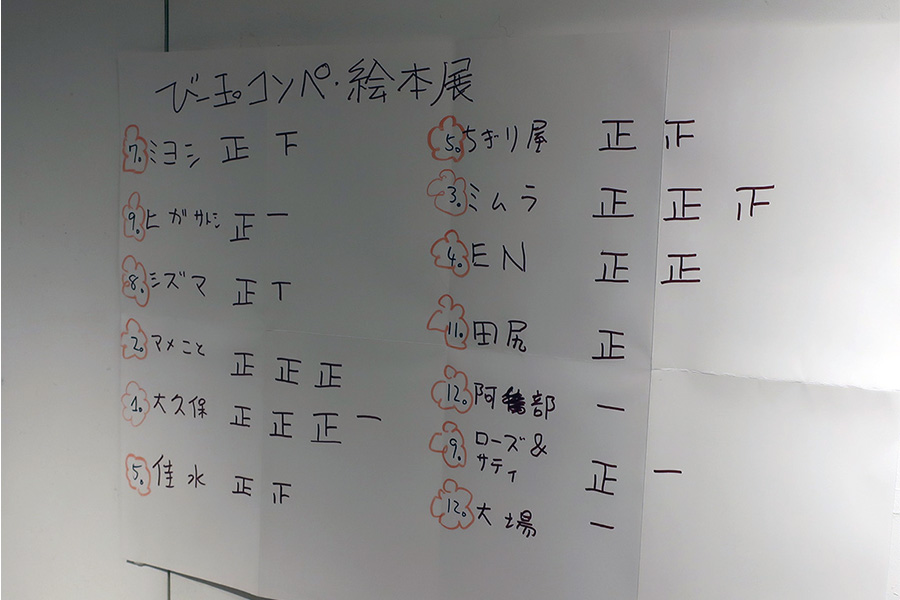 びー玉コンペ・絵本展
7. ミヨシ 正 下
9. ヒガサトシ 正 一
8. シズマ 正 T
2. マメこと 正 正 正
1. 大久保 正 正 正 一
5. 佳水 正 正
5. ちぎり屋 正 正
3. ミムラ 正 正 正
4. EN 正 正
11. 田尻 正
12. 阿部 一
9. ローズ&
サティ 正 一
12. 大場 一